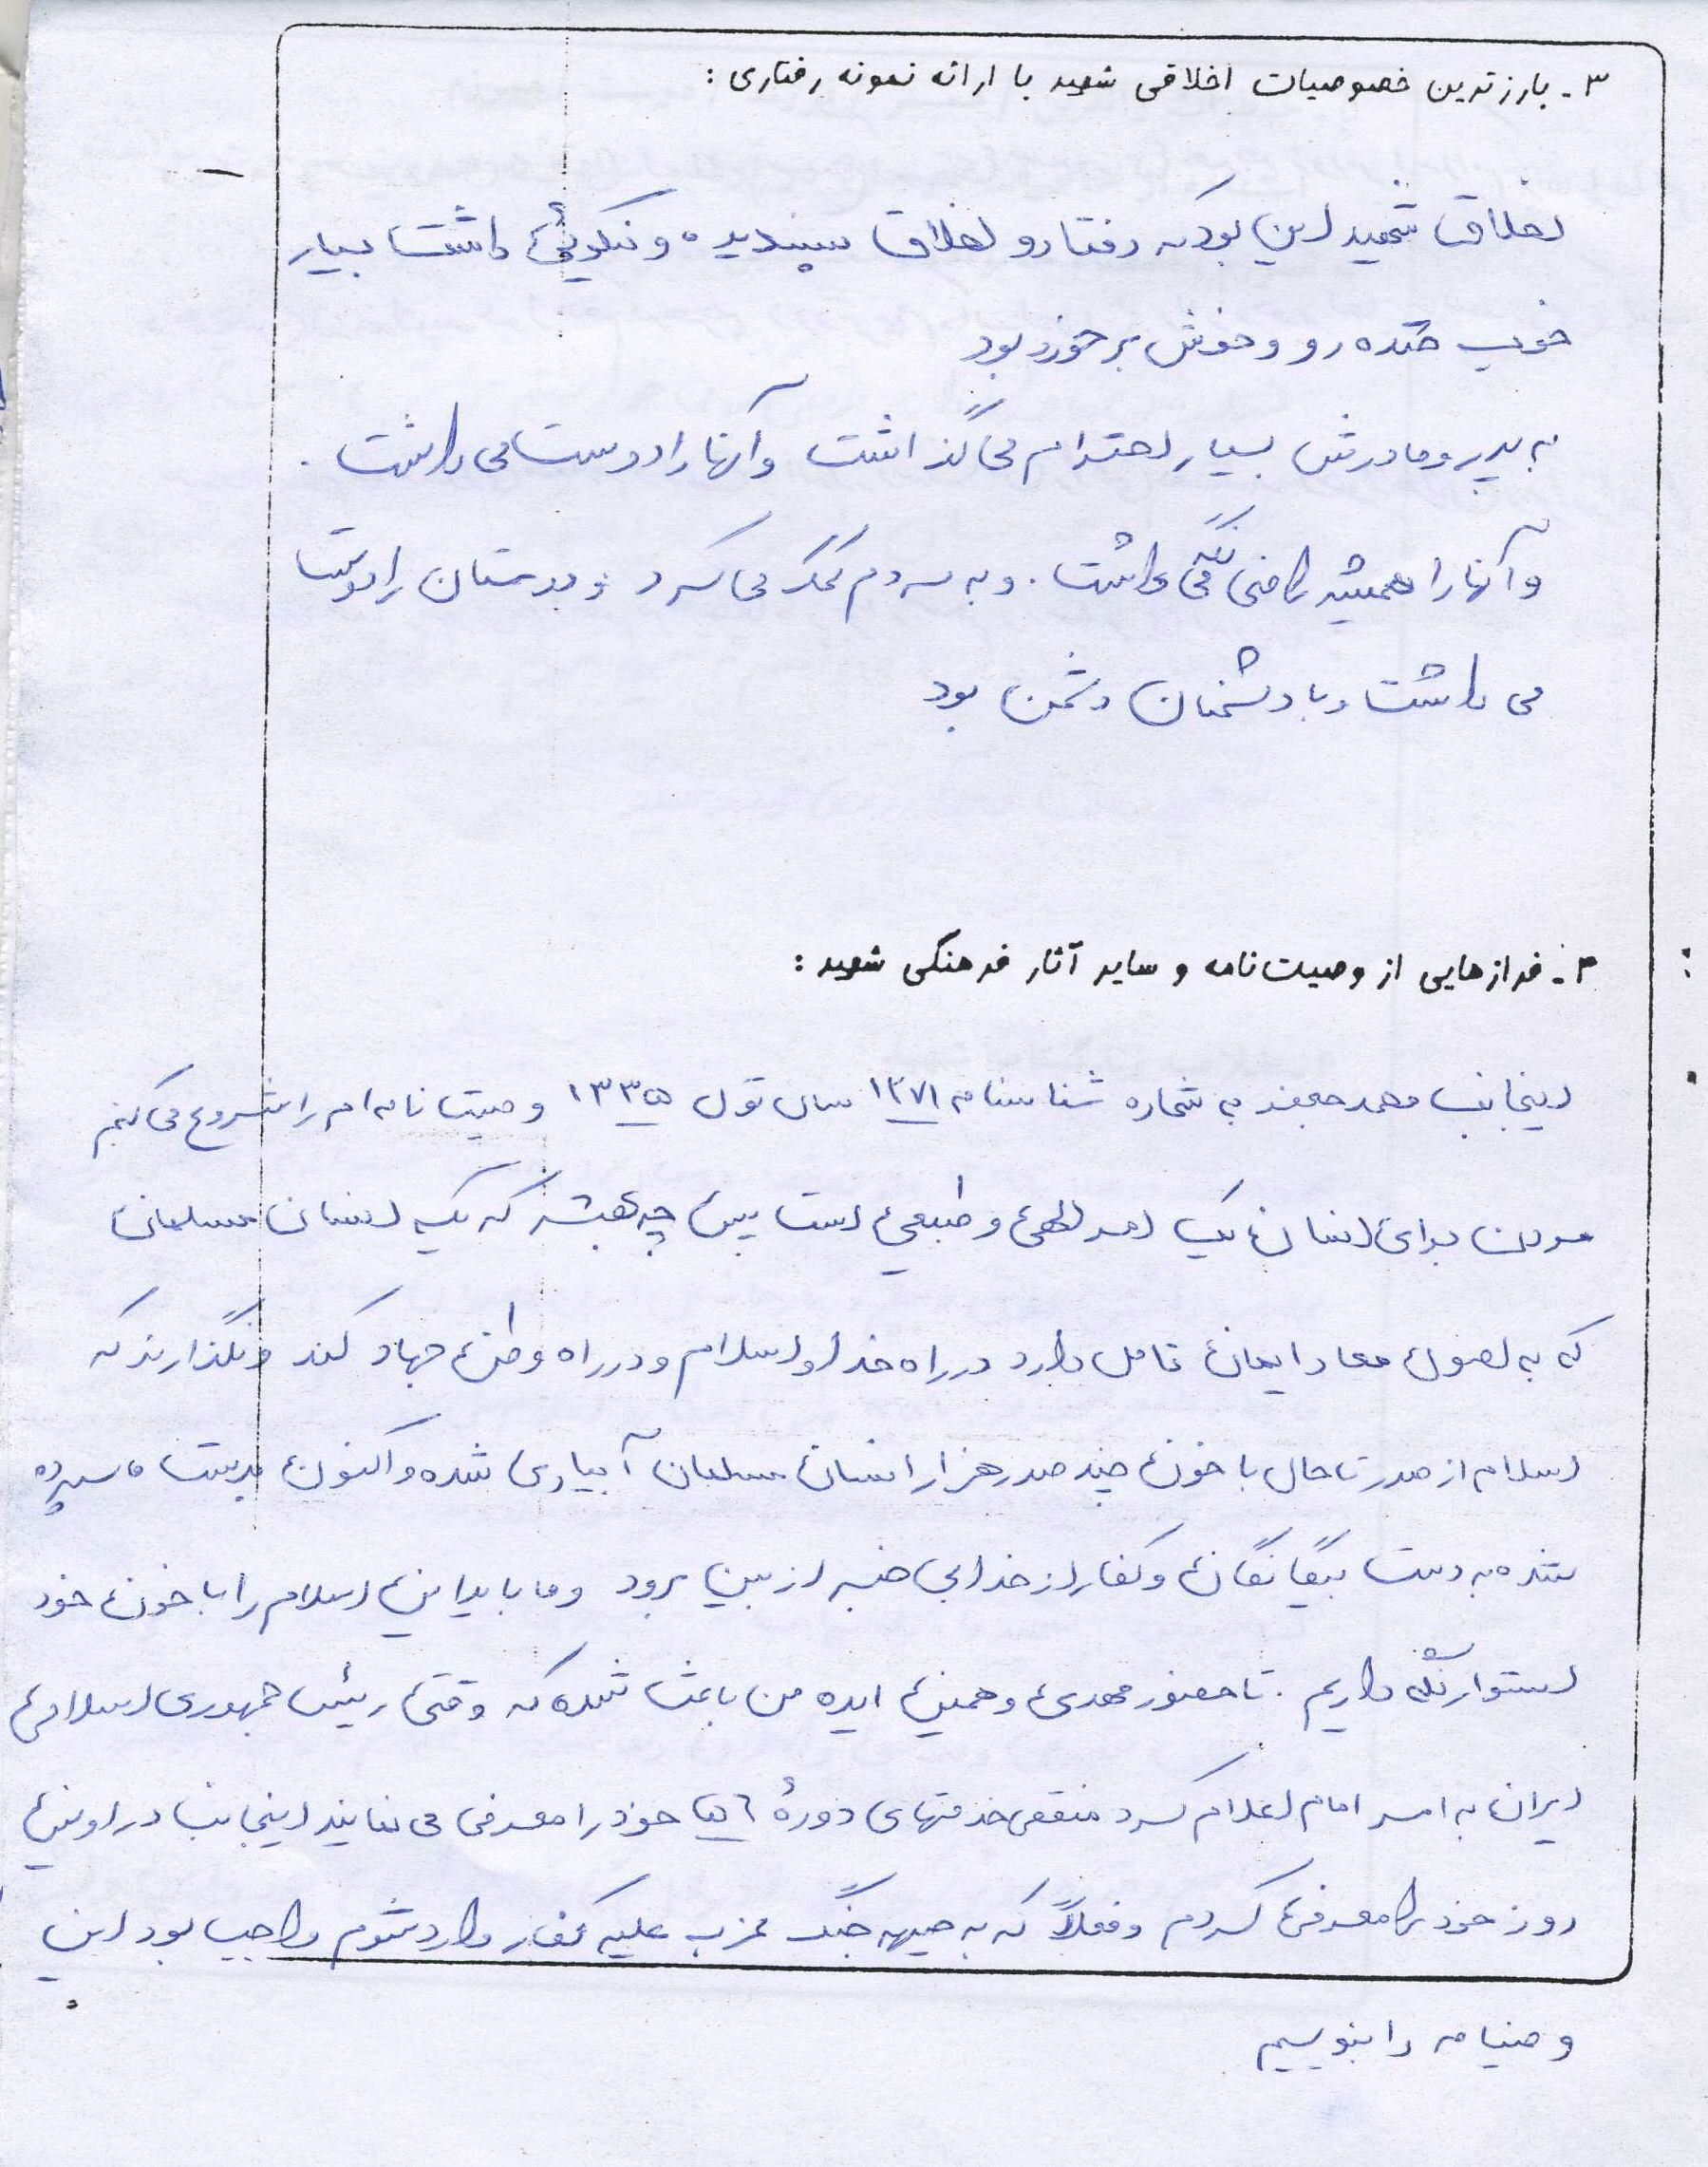 ۳ـ بارزترین خصوصیات اخلاقی شهید با ارائه نمونه رفتاری :
اخلاق شهید این بود که رفتار و اخلاق پسندیده و نیکوئی داشت بسیار
خوب خنده رو و خوش برخورد بود
به پدر و مادرش بسیار احترام می گذاشت و آنها را دوست می داشت .
و آنها را همیشه راضی نگه می داشت . و به مردم کمک می کرد و دوستان را دوست
می داشت و با دشمنان دشمن بود
۴ـ فرازهایی از وصیت‌نامه و سایر آثار فرهنگی شهید :
اینجانب محمد به شماره شناسنامه ۱۲۷۱ سال تولد ۱۳۳۵ وصیت نامه ام را شروع می کنم
مردن برای انسان یک امر الهی و طبیعی است پس چه بهتر که یک انسان مسلمان
که به اصول معاد ایمان کامل دارد در راه خدا و اسلام و در راه وطن جهاد کند و نگذارند که
اسلام از صدر تا حال با خون چند صد هزار انسان مسلمان آبیاری شده و اکنون بدست ما سپرده
شده به دست بیگانگان و کفار از خدا بی خبر از بین برود و ما باید این اسلام را با خون خود
استوار نگه داریم . تا حضور مهدی و همین ایده من باعث شده که وقتی رئیس جمهوری اسلامی
ایران به امر امام اعلام کرد منقضی خدمتهای دورهٔ ۵۶ خود را معرفی می نمایند اینجانب در اولین
روز خود را معرفی کردم و فعلاً که به جبهه جنگ غرب علیه کفار وارد شوم واجب بود این
وصیتنامه را بنویسیم